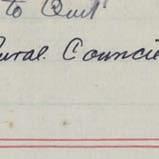 to Quit
ural Counci